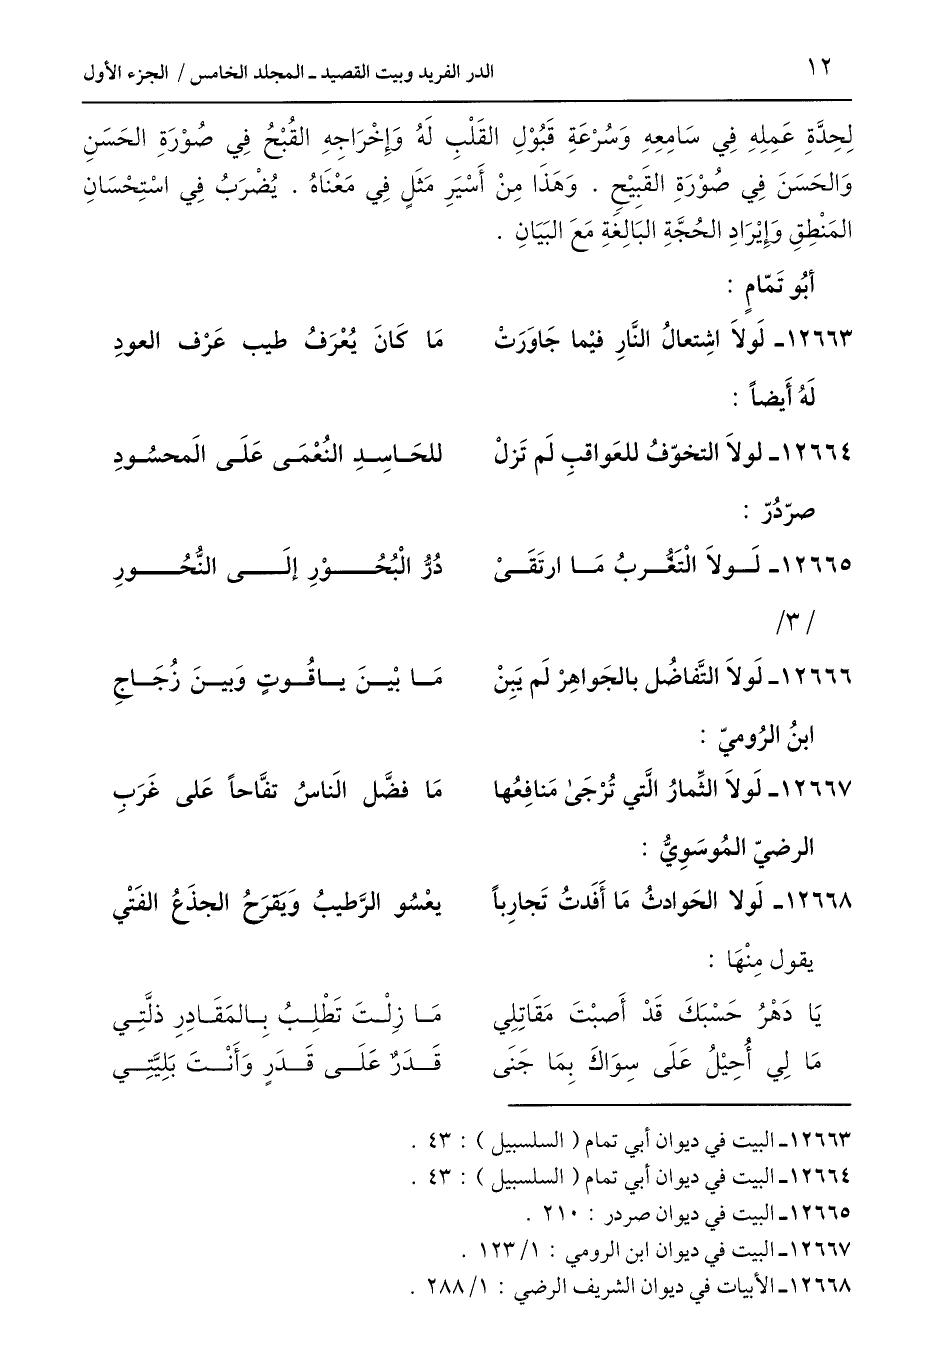 ١٢ الدر الفريد وبيت القصيد ـ المجلد الخامس / الجزء الأول
لِحِدَّةِ عَمِلِهِ فِي سَامِعِهِ وَسُرْعَةِ قَبُوْلِ القَلْبِ لَهُ وَإِخْرَاجِهِ القُبْحُ فِي صُوْرَةِ الحَسَنِ
وَالحَسَنَ فِي صُوْرَةِ القَبِيْحِ . وَهَذَا مِنْ أَسْيَرِ مَثَلٍ فِي مَعْنَاهُ . يُضْرَبُ فِي اسْتِحْسَانِ
المَنْطِقِ وَإِيْرَادِ الحُجَّةِ البَالِغَةِ مَعَ البَيَانِ .
أبُو تَمّامٍ :
١٢٦٦٣ـ لَولاَ اشِتعالُ النَّارِ فيْما جَاوَرَتْ مَا كَانَ يُعْرَفُ طيب عَرْف العودِ
لَهُ أَيضاً :
١٢٦٦٤ـ لولاَ التخوّفُ للعَواقبِ لَم تَزلْ للحَاسِدِ النُعْمَى عَلَى الَمحسُودِ
صرّدُرّ :
١٢٦٦٥ـ لَولاَ الْتَغُّربُ مَا ارتَقَىْ دُرُّ الْبُحُوْرِ إلَى النُّحُورِ
/ ٣/
١٢٦٦٦ـ لَولاَ التَّفاضُل بالجَواهِرْ لَم يَبِنْ مَا بْينَ ياقُوتٍ وَبينَ زُجَاجِ
ابنُ الرُوميّ :
١٢٦٦٧ـ لَولاَ الثِّمارُ الَّتي تُرْجَىٰ مَنافِعُها مَا فضَّل الَناسُ تفَّاحاً عَلى غَرَبِ
الرضيّ المُوسَوِيُّ :
١٢٦٦٨ـ لَولا الحَوادثُ مَا أَفَدتُ تَجارِباً يعْسُو الرَّطيبُ وَيَقرَحُ الجذَعُ الفَتْي
يقول مِنْهَا :
يَا دَهْرُ حَسْبَكَ قَدْ أَصبْتَ مَقَاتِلِي مَا زِلْتَ تَطْلِبُ بِالمَقَادِرِ ذلَّتِي
مَا لِي أُحِيْلُ عَلَى سِوَاكَ بِمَا جَنَى قَدَرٌ عَلَى قَدَرٍ وَأَنْتَ بَلِيَّتِي
١٢٦٦٣ـ البيت في ديوان أبي تمام ( السلسبيل ) : ٤٣ .
١٢٦٦٤ـ البيت في ديوان أبي تمام ( السلسبيل ) : ٤٣ .
١٢٦٦٥ـ البيت في ديوان صردر : ٢١٠ .
١٢٦٦٧ـ البيت في ديوان ابن الرومي : ١/ ١٢٣ .
١٢٦٦٨ـ الأبيات في ديوان الشريف الرضي : ١/ ٢٨٨ .